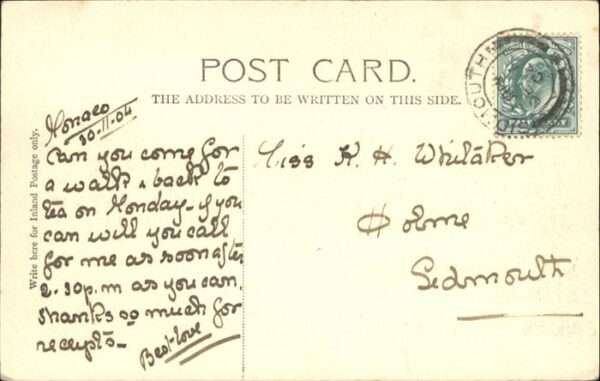 POST CARD.
THE ADDRESS TO BE WRITTEN ON THIS SIDE.
Write here for Inland Postage only.
Monaco
30.11.04
Can you come for
a walk & back to
tea on Monday - if you
can will you call
for me as soon after
2.30 p.m as you can.
Thanks so much for
receipts -
Best love
Miss K. H. Whitaker
Holme
Sidmouth
SIDMOUTH